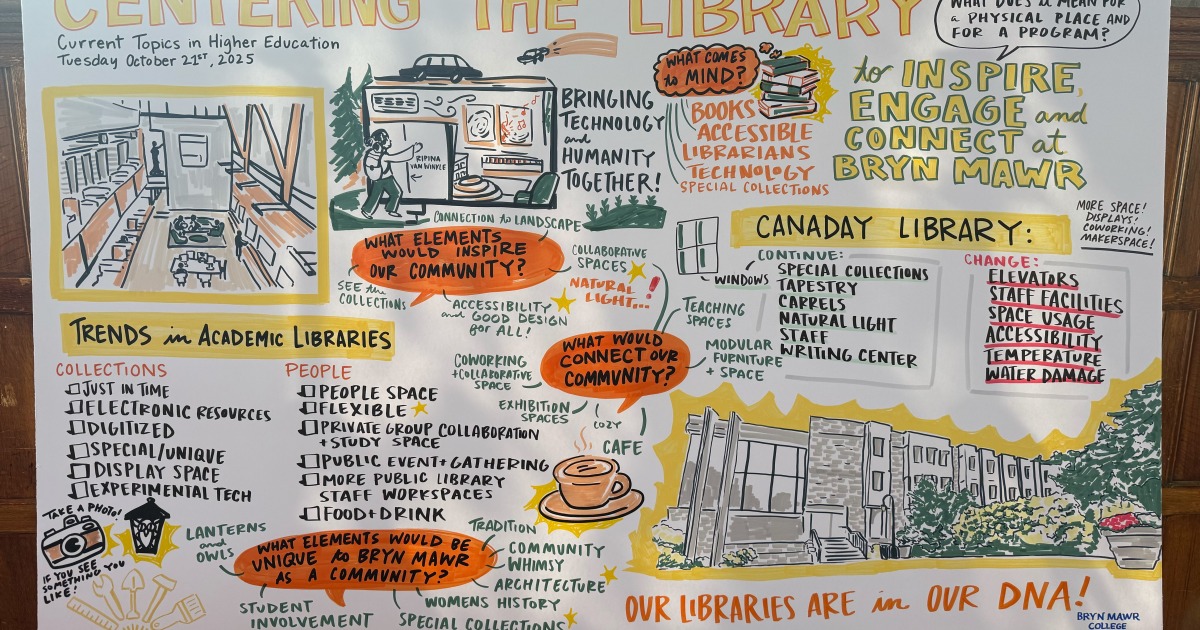 CENTERING THE LIBRARY
Current Topics in Higher Education
Tuesday October 21st, 2025
WHAT DOES it MEAN FOR
a PHYSICAL PLACE AND
FOR A PROGRAM?
to INSPIRE,
ENGAGE and
CONNECT at
BRYN MAWR
BRINGING
TECHNOLOGY
and
HUMANITY
TOGETHER!
RIPINA
VAN WINKLE
WHAT COMES
to MIND?
BOOKS
ACCESSIBLE
LIBRARIANS
TECHNOLOGY
SPECIAL COLLECTIONS
WHAT ELEMENTS
WOULD INSPIRE
OUR COMMUNITY?
CONNECTION to LANDSCAPE
COLLABORATIVE
SPACES
NATURAL
LIGHT...!
SEE the
COLLECTIONS
ACCESSIBILITY
and GOOD DESIGN
for ALL!
CANADAY LIBRARY:
MORE SPACE!
DISPLAYS!
COWORKING!
MAKERSPACE!
WINDOWS
CONTINUE:
SPECIAL COLLECTIONS
TAPESTRY
CARRELS
NATURAL LIGHT
STAFF
WRITING CENTER
CHANGE:
ELEVATORS
STAFF FACILITIES
SPACE USAGE
ACCESSIBILITY
TEMPERATURE
WATER DAMAGE
TRENDS in ACADEMIC LIBRARIES
COLLECTIONS
JUST IN TIME
ELECTRONIC RESOURCES
DIGITIZED
SPECIAL/UNIQUE
DISPLAY SPACE
EXPERIMENTAL TECH
PEOPLE
PEOPLE SPACE
FLEXIBLE
PRIVATE GROUP COLLABORATION
+ STUDY SPACE
PUBLIC EVENT + GATHERING
MORE PUBLIC LIBRARY
STAFF WORKSPACES
FOOD + DRINK
WHAT WOULD
CONNECT OUR
COMMUNITY?
TEACHING
SPACES
MODULAR
FURNITURE
+ SPACE
COWORKING
+COLLABORATIVE
SPACE
EXHIBITION
SPACES
COZY
CAFE
TAKE A PHOTO!
IF YOU SEE
SOMETHING YOU
LIKE!
WHAT ELEMENTS WOULD BE
UNIQUE to BRYN MAWR
AS A COMMUNITY?
LANTERNS
and
OWLS
TRADITION
COMMUNITY
WHIMSY
ARCHITECTURE
WOMENS HISTORY
SPECIAL COLLECTIONS
STUDENT
INVOLVEMENT
OUR LIBRARIES ARE in OUR DNA!
BRYN MAWR
COLLEGE